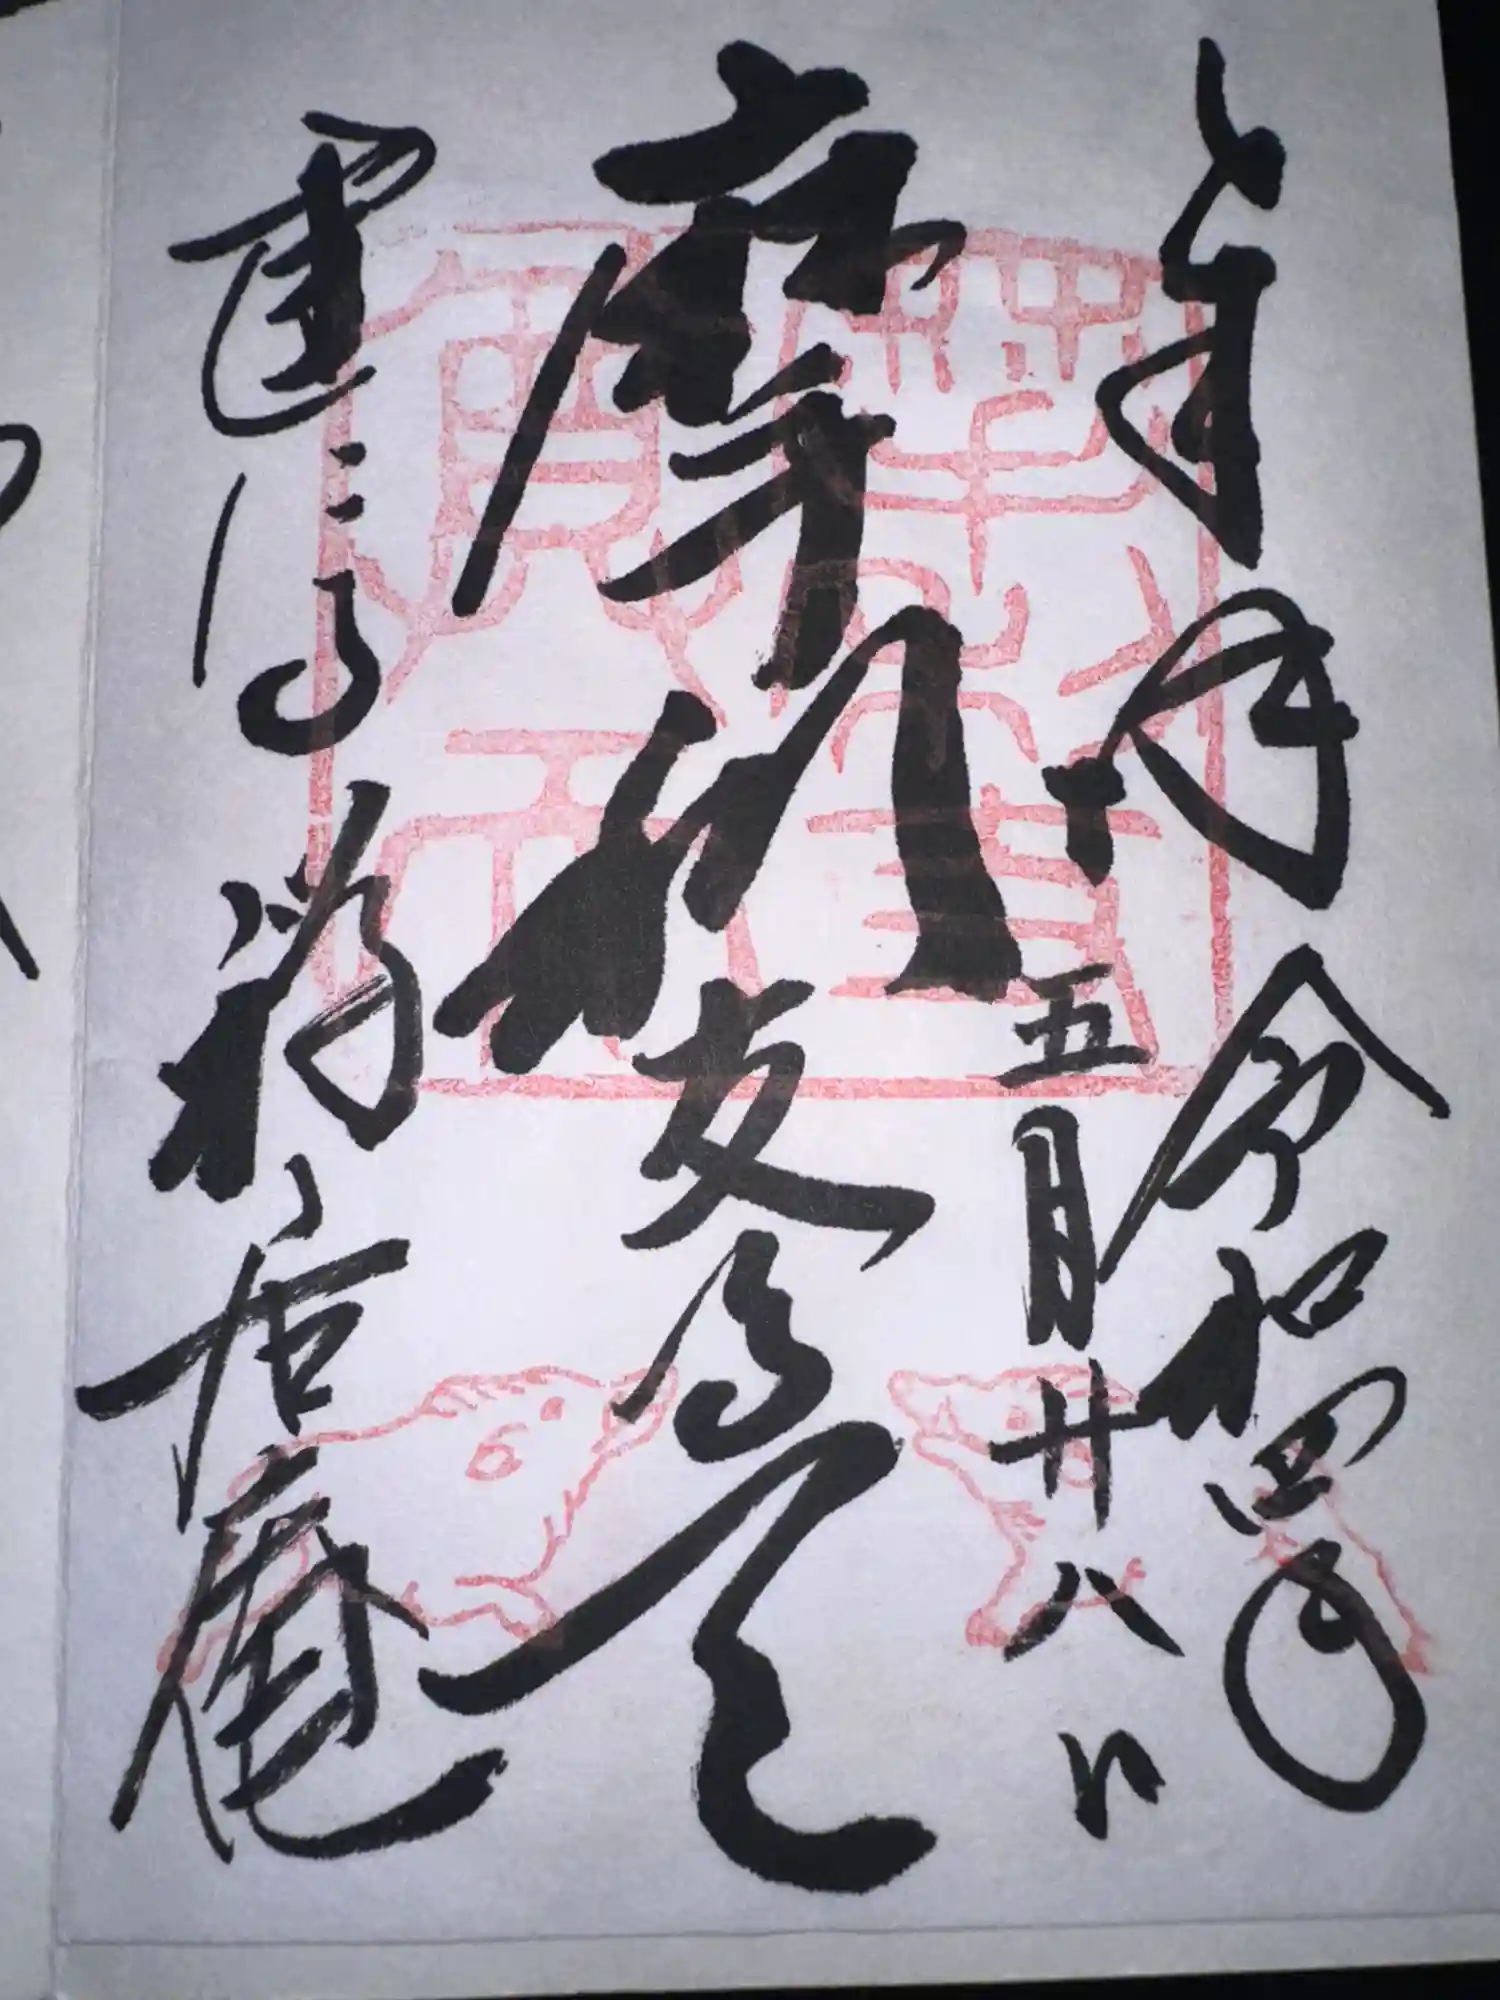 奉拝 令和四年
五月廿八日
摩利支尊天
建仁寺 禅居庵